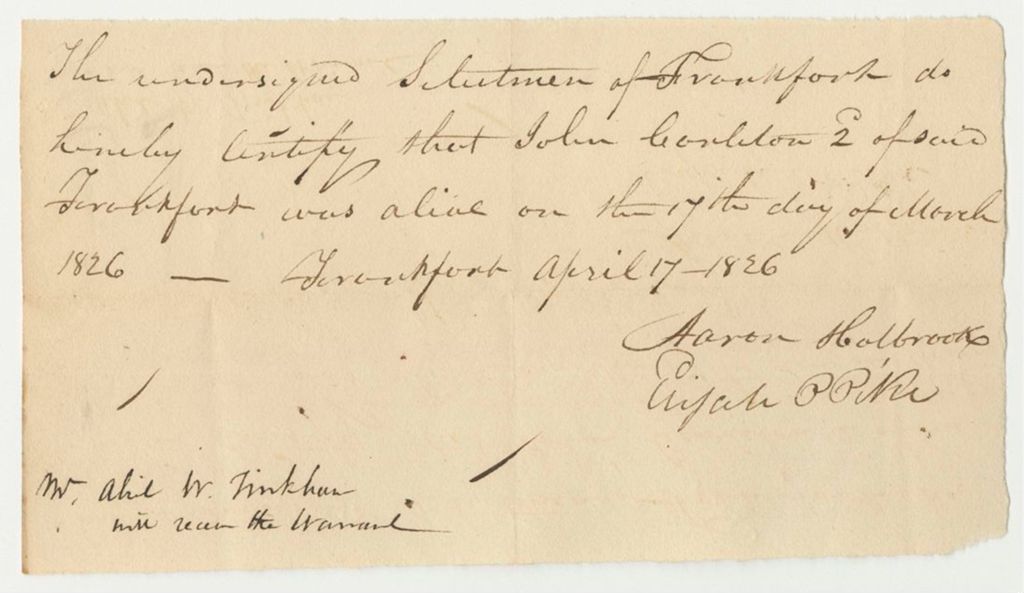 The undersigned Selectmen of Frankfort do
hereby Certify that John Carleton 2d of said
Frankfort was alive on the 17th day of March
1826 — Frankfort April 17 – 1826
Aaron Holbrook
Elijah P Pike
Mr. Abiel W. Tinkham
will receive the Warrant